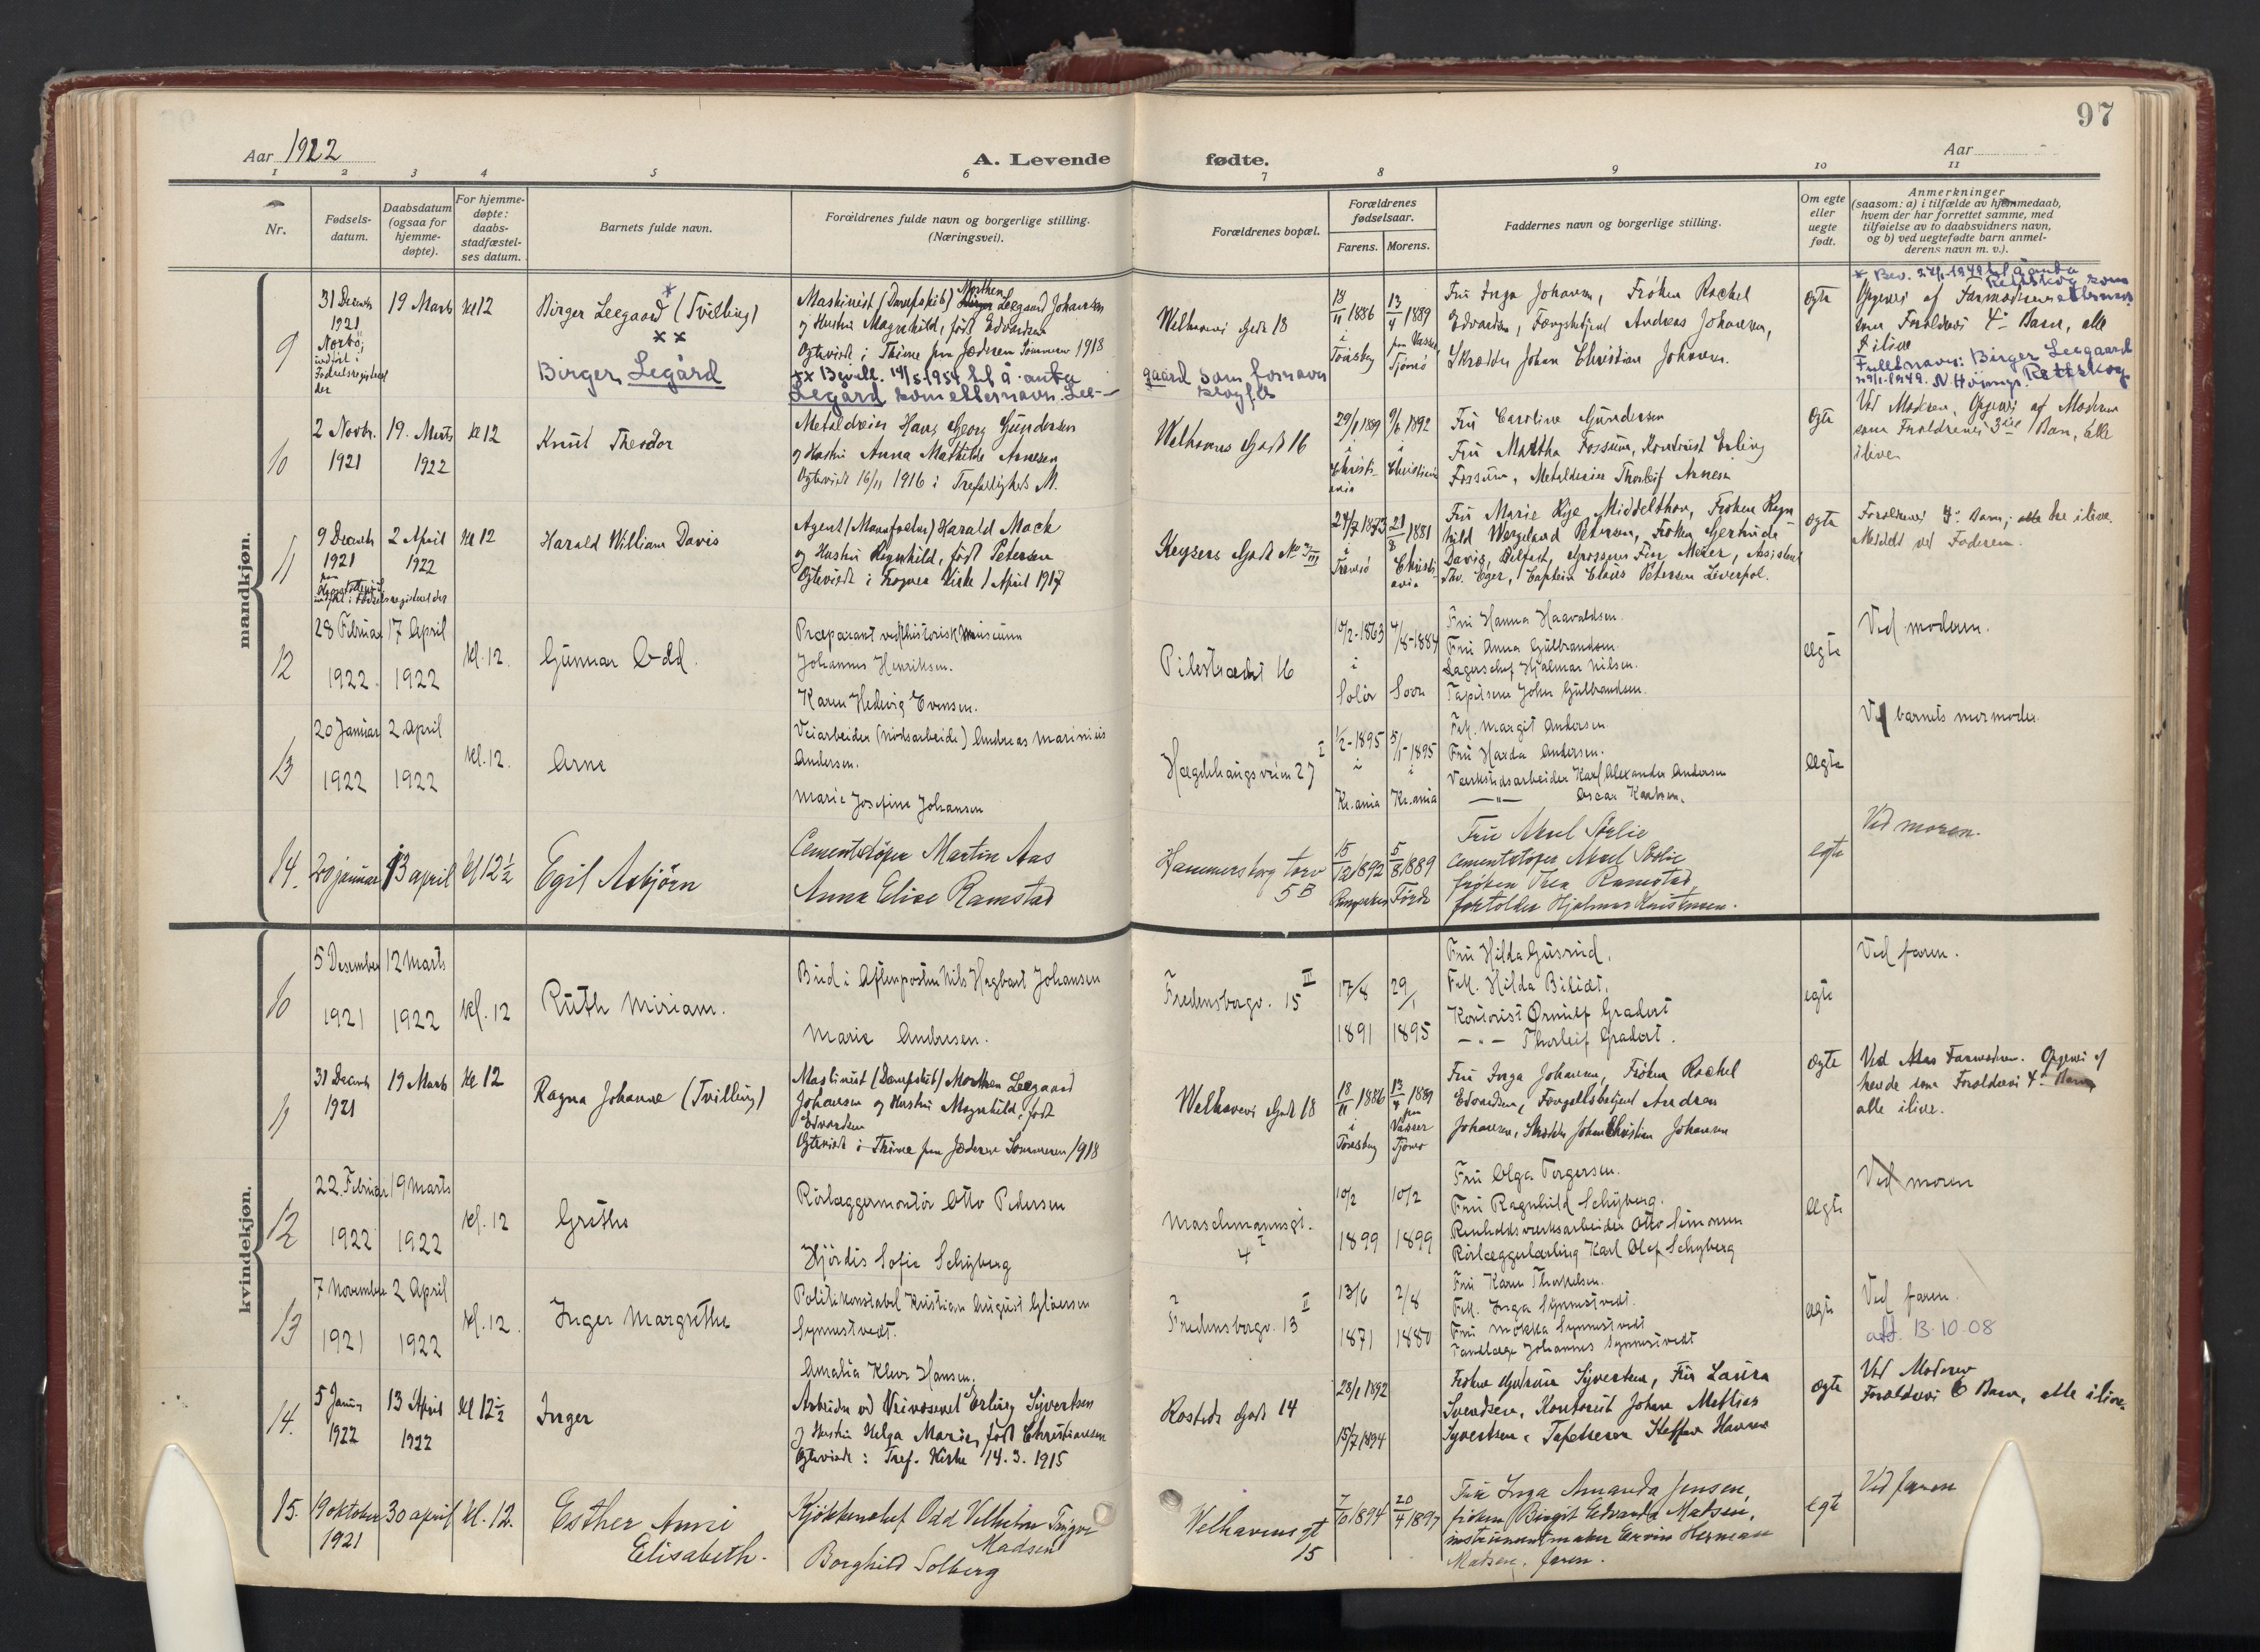 97
Aar 1922
A. Levende fødte.
Aar
1 2 3 4 5 6 7 8 9 10 11
Nr.
Fødsels-
datum.
Daabsdatum
(ogsaa for
hjemme-
døpte).
For hjemme-
døpte:
daabs-
stadfæstel-
ses datum.
Barnets fulde navn.
Forældrenes fulde navn og borgerlige stilling.
(Næringsvei).
Forældrenes bopæl.
Forældrenes
fødselsaar.
Farens. Morens.
Faddernes navn og borgerlige stilling.
Om egte
eller
uegte
født.
Anmerkninger
(saasom: a) i tilfælde av hjemmedaab,
hvem der har forrettet samme, med
tilføielse av to daabsvidners navn,
og b) ved uegtefødte barn anmel-
derens navn m. v.).
mandkjøn.
9
31 Decemb
1921
indført i
Fødselsregisteret
der
19 Marts
Kl 12
Birger Leegaard * (Tvilling)
x x
Birger Legård
Maskinist (Dampskib) Morthen Leegaard Johansen
og Hustru Magnhild, født Edvardsen
Ogteviede i Thime paa Jæderen Sommeren 1918
xx Bevill. 14/5 1954 til å anta
Legård som etternavn. Lee-
gaard som fornavn
Welhavens Gade 18
18/11 1886
i
Tønsberg
13/4 1889
paa Vasser
Tjømø
Fru Inga Johansen, Frøken Rachel
Edvardsen, Fængselsbetjent Andreas Johansen,
Skrædder Johan Christian Johansen.
Ogte
Opgivet af Farmoderen
som Forældrenes 4de Barn, alle
i live
Fullt navn: Birger Leegaard
10
2 Novbr.
1921
19. Marts
1922
Kl 12
Knut Theodor
Metaldreier Hans Georg Gundersen
og Hustru Anna Mathilde Arnesen
Ogteviede 16/11 1916 i Trefoldigheds M.
Welhavens Gade 16
29/1 1889
i
Christi-
ania
9/6 1892
i
Christiania
Fru Caroline Gundersen
Fru Martha Fossum, Kontorist Erling
Fossum, Metaldreier Thorleif Arnesen
Ogte
Ved Moderen, Opgivet af Moderen
som Forældrenes 3die Barn, alle
ilive
11
9 Decemb
1921
2 April
1922
Kl 12
Harald William Davis
Agent (Manufaktur) Harald Mack
og Hustru Regnhild, født Petersen
Ogteviede i Frogner Kirke 1 April 1917
Keysers Gade No
24/7 1873
i
Tromsø
21/8 1881
Christi
ania
Fru Marie Rye Middelthon, Frøken Regn-
hild Wergeland Petersen, Frøken Gertrude
Davis, Belfast, Grosserer Finn Meier, Assistent
Thv. Eger, Captein Claus Petersen Liverpol.
Ogte
Forældrenes 4de Barn; alle tre ilive.
Meddelt ved Faderen.
12
28 Februar
1922.
17 April
1922
Kl. 12.
Gunnar Odd.
Præparant ved historisk museum
Johannes Henriksen.
Karen Hedevig Evensen.
Pilestrædet 16
10/2-1863
i
Solør
4/8-1884
Fru Hanna Haavaldsen.
Fru Anna Gulbrandsen.
Lagerchef Hjalmar Nilsen.
Tapetserer John Gulbrandsen.
Ægte
Ved moderen.
13
20 Januar
1922
2 April
1922
Kl. 12.
Arne
Veiarbeider (nødsarbeide) Andreas Marinius
Andersen.
Marie Josefine Johansen
Hægdehaugsveien 27 I
1/2-1895
i
Kr.ania
5/5-1895
i
Kr.ania
Frk. Margit Andersen
Fru Harda Andersen.
Værkstedsarbeider Karl Alexander Andersen
—"— Oscar Karlsen.
Ægte
Ved barnets mormoder
14.
20 januar
13 april
Kl 12½
Egil Asbjørn
Cementstøper Martin Aas
Anna Elise Ramstad
Hammersborg torv
5B
15/12 1892
5/8 1889
Førde
Fru Aksel Sørlie
cementstøper Aksel Sørlie
frøken Thea Ramstad,
fortolder Hjalmar Kristensen.
egte
Ved moren.
kvindekjøn.
10
5 Desember
1921
12 Marts
1922
Kl. 12
Ruth Miriam.
Bud i Aftenposten Nils Hagbart Johansen
Marie Andresen.
Fredensborgv. 15 III
17/8
1891
29/1
1895
Fru Hilda Gusrud.
Frk. Hilda Bilidt.
Kontorist Ørnulf Gradert
—"— Thorleif Gradert.
egte
Ved faren.
11
31 Decemb
1921
19 Marts
Kl 12
Ragna Johanne (Tvilling)
Maskinist (Dampskib) Morthen Leegaard
Johansen og Hustru Magnhild, født
Edvardsen
Ogteviede i Thime paa Jæderen Sommeren 1918
Welhavens Gade 18
18/11 1886
i
Tønsberg
13/4 1889
paa
Vasser
Tjømø
Fru Inga Johansen, Frøken Rachel
Edvardsen, Fængselsbetjent Andreas
Johansen, Skrædder Johan Christian Johansen
Ogte
Ved Farmoderen. Opgivet af
hende som Forældrenes 4de Barn
alle ilive.
12
22. Februar
1922
19 Marts
1922
Kl. 12
Grethe
Rørlæggermontør Otto Pedersen
Hjørdis Sofie Schyberg
Maschmannsgt.
4 I
10/2
1899
10/2
1899
Fru Olga Torgersen.
Fru Ragnhild Schyberg.
Renholdsverksarbeider Otto Simonsen
Rørlæggerlærling Karl Olaf Schyberg
Ægte
Ved moren
13
7 November
1921
2 April
1922
Kl. 12.
Inger Margrethe
Politikonstabel Kristian August Gløersen
Synnestvedt.
Amalia Klever Hansen.
Fredensborgv. 13 II
13/6
1871
2/8
1880
Fru Karen Thorkelsen.
Frk. Inga Synnestvedt.
Fru Mokka Synnestvedt
Tandlæge Johannes Synnestvedt
ægte
Ved faren.
att. 13.10 08
14.
5 Januar
1922
13 April
1922
Kl 12½
Inger
Arbeider ved Veivæsenet Erling Syvertsen
og Hustru Helga Marie, født Christiansen
Ogteviede i Tref. Kirke 14.3.1915
Rosteds Gade 14
28/1 1892
15/7 1894
Frøken Gudrun Syvertsen, Fru Laura
Svendsen, Kontorist Johan Mathias
Syvertsen, Tapetserer Steffen Hansen
Ogte
Ved Moderen
Forældrenes 6 Barn, alle ilive.
15.
19 oktober
1921
30 april
Kl. 12.
Esther Anni
Elisabeth.
Kjøkkenchef Odd Vilhelm Trygve
Madsen
Borghild Solberg
Welhavens gt
15
7/10 1894
20/4 1897
Fru Inga Amanda Jensen,
frøken Birgit Edvarda Madsen,
instrumentmaker Ervin Herman
Madsen. faren.
egte
Ved faren